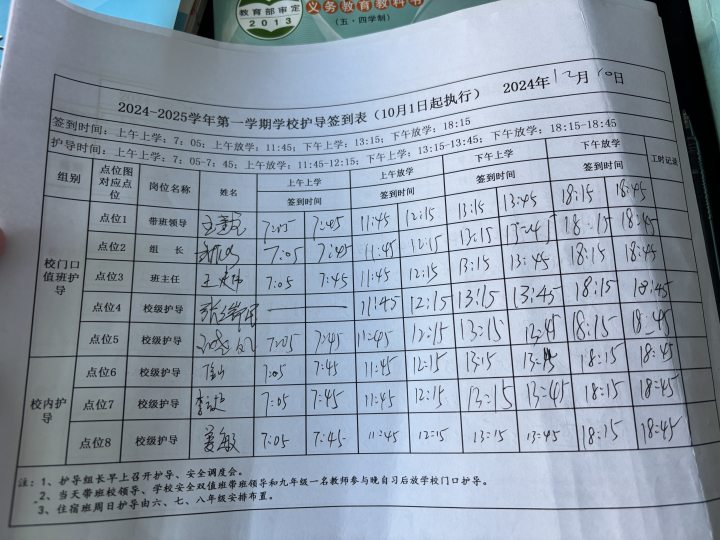 教育部审定
2013
义务教育教科书
(五·四学制)
2024-2025学年第一学期学校护导签到表（10月1日起执行） 2024年12月10日
签到时间：上午上学：7：05；上午放学：11:45；下午上学：13:15；下午放学：18:15
护导时间：上午上学：7：05-7：45；上午放学：11:45-12:15；下午上学：13:15-13:45；下午放学：18:15-18:45
组别 点位图对应点位 岗位名称 姓名 上午上学 上午放学 下午上学 下午放学 工时记录
签到时间 签到时间 签到时间 签到时间
校门口值班护导
点位1 带班领导 7:05 7:45 11:45 12:15 13:15 13:45 18:15 18:45
点位2 组 长 7:05 7:45 11:45 12:15 13:15 13:45 18:15 18:45
点位3 班主任 王 7:05 7:45 11:45 12:15 13:15 13:45 18:15 18:45
点位4 校级护导 —— —— 11:45 12:15 13:15 13:45 18:15 18:45
点位5 校级护导 7:05 7:45 11:45 12:15 13:15 13:45 18:15 18:45
校内护导
点位6 校级护导 7:05 7:45 11:45 12:15 13:15 13:45 18:15 18:45
点位7 校级护导 李 7:05 7:45 11:45 12:15 13:15 13:45 18:15 18:45
点位8 校级护导 姜敏 7:05 7:45 11:45 12:15 13:15 13:45 18:15 18:45
注：1、护导组长早上召开护导、安全调度会。
2、当天带班校领导、学校安全双值班带班领导和九年级一名教师参与晚自习后放学校门口护导。
3、住宿班周日护导由六、七、八年级安排布置。